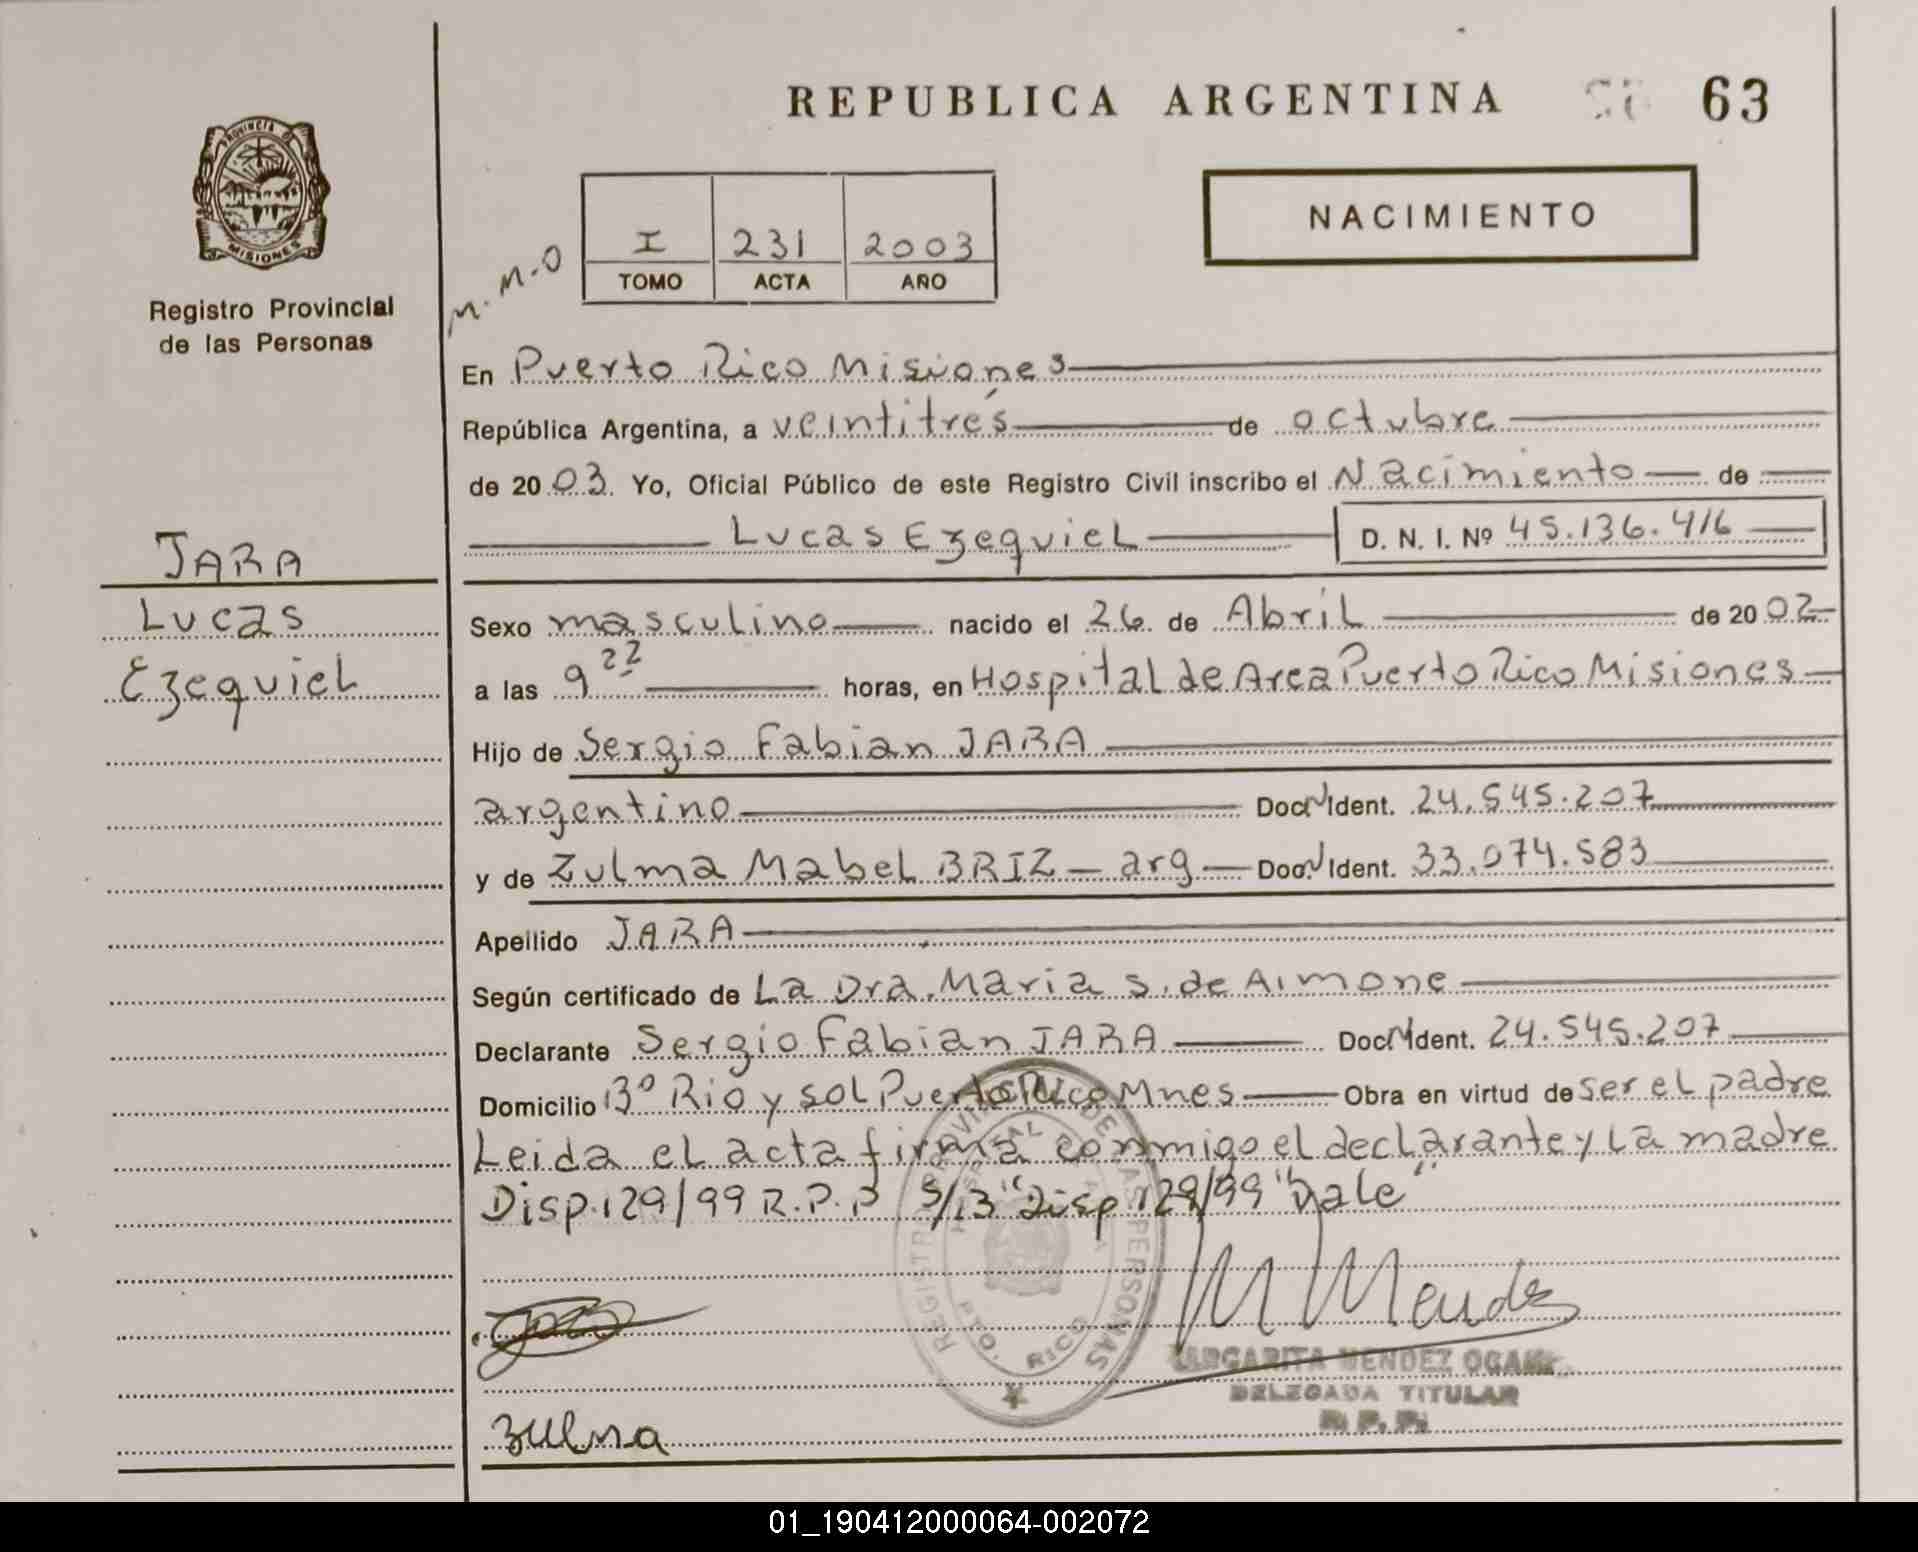 REPUBLICA ARGENTINA 63
PROVINCIA DE
MISIONES
Registro Provincial
de las Personas
NACIMIENTO
M.M.O
I 231 2003
TOMO ACTA AÑO
En Puerto Rico Misiones
República Argentina, a veintitrés de octubre
de 2003. Yo, Oficial Público de este Registro Civil inscribo el Nacimiento de
Lucas Ezequiel D. N. I. Nº 45.136.416
JARA
Lucas
Ezequiel
Sexo masculino nacido el 26 de Abril de 2002
a las 9 22 horas, en Hospital de Area Puerto Rico Misiones
Hijo de Sergio Fabian JARA
argentino Doc. Ident. 24.545.207
y de Zulma Mabel BRIZ - arg - Doc. Ident. 33.074.583
Apellido JARA
Según certificado de La Dra. Maria S. de Aimone
Declarante Sergio Fabian JARA Doc. Ident. 24.545.207
Domicilio Bº Rio y sol Puerto Rico Mnes Obra en virtud de ser el padre
Leida el acta firma conmigo el declarante y La madre
Disp. 129/99 R.P.P S/B "Disp 129/99 "Vale"
REGISTRO PROVINCIAL DE LAS PERSONAS
PTO. RICO
M Mendez
MARGARITA MENDEZ OCAMP
DELEGADA TITULAR
R. P. P.
Zulma
01_190412000064-002072